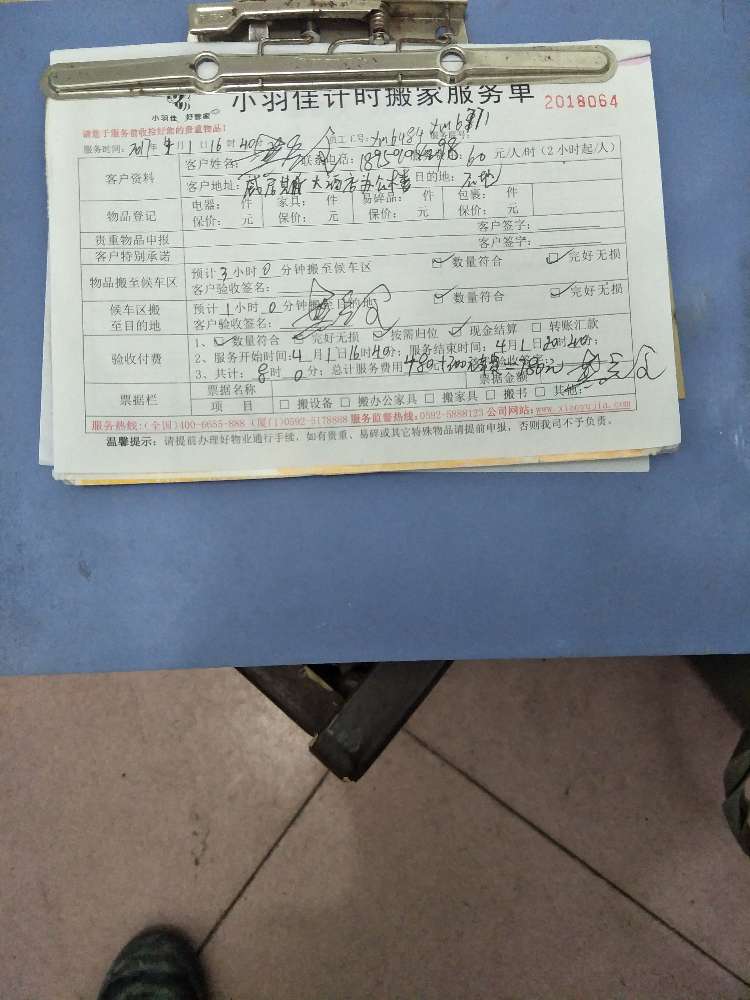 小羽佳计时搬家服务单 2018064
小羽佳 好管家
请您于服务前收捡好您的贵重物品!
服务时间: 年 月 1 日 16 时 40分 员工工号: xm6484
客户资料 客户姓名: 联系电话: 60 元/人/时(2小时起/人)
客户地址: 大酒店办公楼 目的地:
物品登记 电器: 件 家具: 件 易碎品: 件 包装: 件
保价: 元 保价: 元 保价: 元 保价: 元
贵重物品申报 客户签字:
客户特别承诺 客户签字:
物品搬至候车区 预计 3 小时 0 分钟搬至候车区 数量符合 完好无损
客户验收签名:
候车区搬至目的地 预计 1 小时 0 分钟搬至目的地 数量符合 完好无损
客户验收签名:
验收付费 1、 数量符合 完好无损 按需归位 现金结算 转账汇款
2、服务开始时间: 4 月 1 日 16 时 40分; 服务结束时间: 4 月 1 日 20时 40分;
3、共计: 8 时 0 分; 总计服务费用 480元+300 = 780元
票据栏 票据名称 票据金额
项 目 搬设备 搬办公家具 搬家具 搬书 其他:
服务热线:(全国)400-6655-888 (厦门)0592-5178888 服务监督热线:0592-5888123 公司网站:www.xiaoyujia.com
温馨提示: 请提前办理好物业通行手续,如有贵重、易碎或其它特殊物品请提前申报,否则我司不予负责。